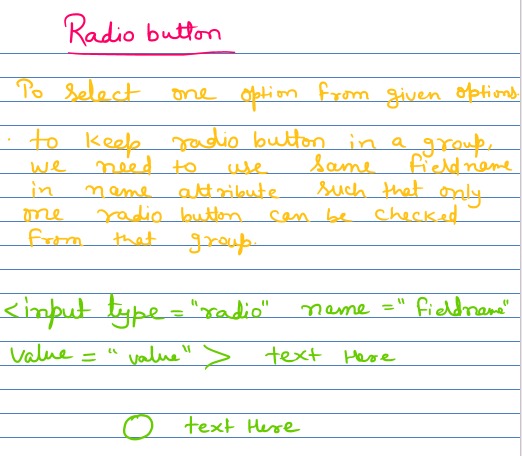 Radio button
To select one option from given options
· to keep radio button in a group,
we need to use same fieldname
in name attribute such that only
one radio button can be checked
from that group.
<input type = "radio" name = "fieldname"
value = "value" > text Here
text Here